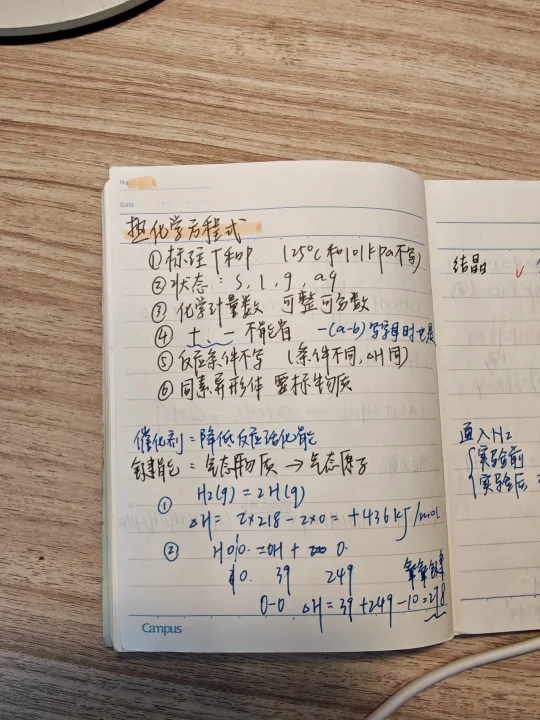 No.
Date
热化学方程式
①标注T和P (25°C和101kPa不写)
②状态:s,l,g,aq
③化学计量数 可整可分数
④ +、- 不能省 -(a-b)写字母时也是
⑤反应条件不写 (条件不同,△H同)
⑥同素异形体 要标物质
催化剂:降低反应活化能
键能:气态物质→气态原子
① H₂(g)=2H(g)
△H= 2×218-2×0=+436kJ/mol
② HO·O·=OH+ O·
10. 39 249
O-O △H=39+249-10=278
Campus
结晶
通入H₂
实验前
实验后